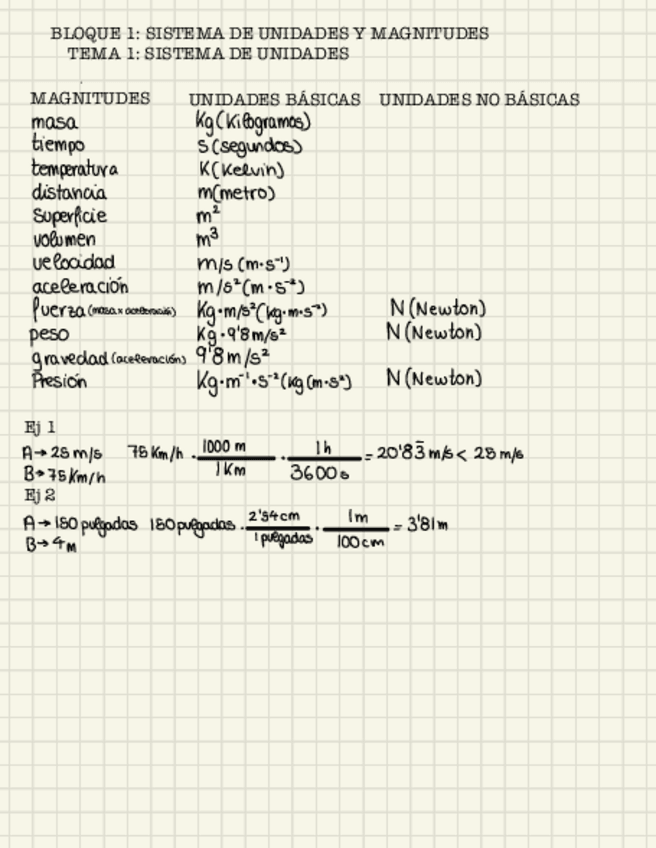 BLOQUE 1: SISTEMA DE UNIDADES Y MAGNITUDES
TEMA 1: SISTEMA DE UNIDADES
MAGNITUDES UNIDADES BÁSICAS UNIDADES NO BÁSICAS
masa Kg (Kilogramos)
tiempo s (segundos)
temperatura K (Kelvin)
distancia m (metro)
Superficie m²
volumen m³
velocidad m/s (m·s⁻¹)
aceleración m/s² (m·s⁻²)
fuerza (masa x aceleración) Kg·m/s² (kg·m·s⁻²) N (Newton)
peso Kg·9'8m/s² N (Newton)
gravedad (aceleración) 9'8 m/s²
Presión Kg·m⁻¹·s⁻² (kg (m·s²) N (Newton)
Ej 1
A→ 25 m/s 75 Km/h · 1000 m / 1 Km · 1 h / 3600 s = 20'83̄ m/s < 25 m/s
B→ 75 Km/h
Ej 2
A→ 150 pulgadas 150 pulgadas · 2'54 cm / 1 pulgadas · 1 m / 100 cm = 3'81 m
B→ 4 m